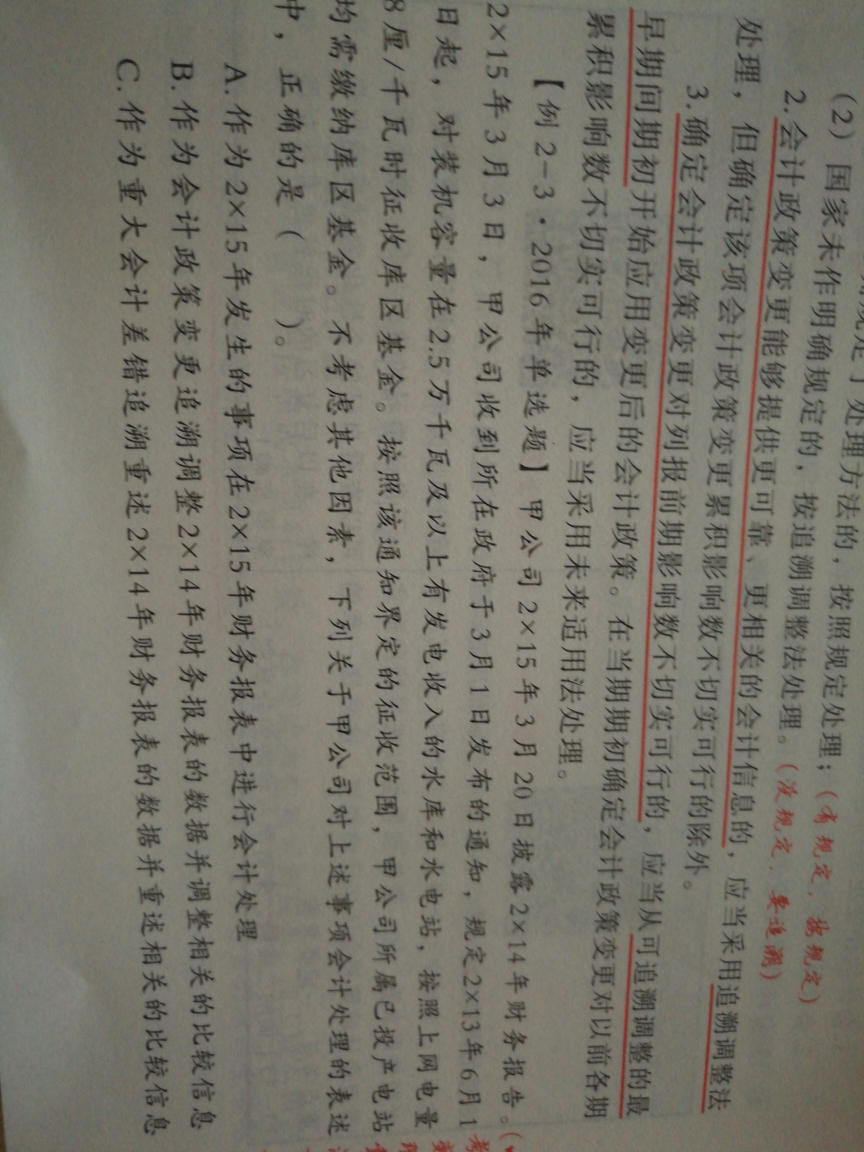 规定了处理方法的，按照规定处理；（有规定，按规定）
（2）国家未作明确规定的，按追溯调整法处理。（没规定，要追溯）
2.会计政策变更能够提供更可靠、更相关的会计信息的，应当采用追溯调整法
处理，但确定该项会计政策变更累积影响数不切实可行的除外。
3.确定会计政策变更对列报前期影响数不切实可行的，应当从可追溯调整的最
早期间期初开始应用变更后的会计政策。在当期期初确定会计政策变更对以前各期
累积影响数不切实可行的，应当采用未来适用法处理。
【例2-3·2016年单选题】甲公司2×15年3月20日披露2×14年财务报告。
2×15年3月3日，甲公司收到所在政府于3月1日发布的通知，规定2×13年6月1
日起，对装机容量在2.5万千瓦及以上有发电收入的水库和水电站，按照上网电量
8厘/千瓦时征收库区基金。按照该通知界定的征收范围，甲公司所属已投产电站
均需缴纳库区基金。不考虑其他因素，下列关于甲公司对上述事项会计处理的表述
中，正确的是（ ）。
A.作为2×15年发生的事项在2×15年财务报表中进行会计处理
B.作为会计政策变更追溯调整2×14年财务报表的数据并调整相关的比较信息
C.作为重大会计差错追溯重述2×14年财务报表的数据并重述相关的比较信息